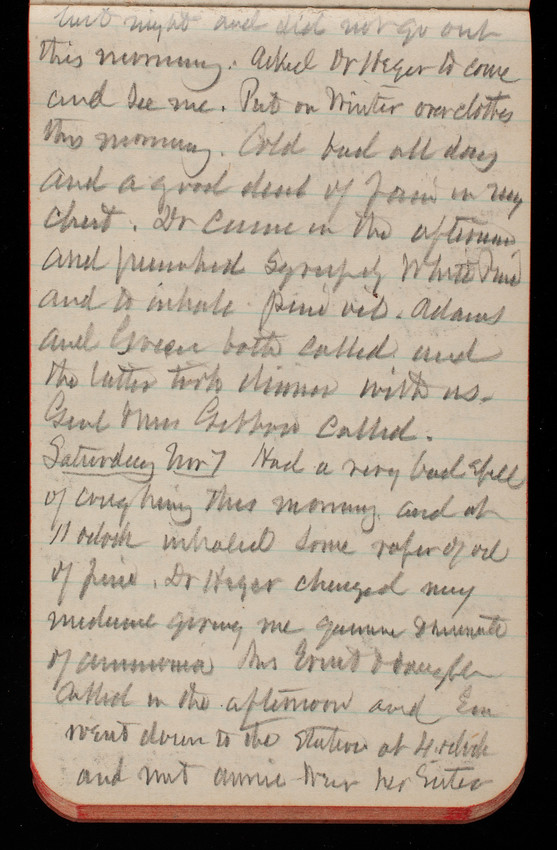 last night and did not go out
this morning. Asked Dr Heger to come
and see me. Put on Winter overclothes
this morning. Cold bad all day
and a good deal of pain in my
chest. Dr came in the afternoon
and prescribed Syrup of White Pine
and to inhale pine oil. Adams
and Green both called and
the latter took dinner with us.
Genl & Mrs Gibbon called.
Saturday Nov 7 Had a very bad spell
of coughing this morning and at
11 oclock inhaled some vapor of oil
of pine. Dr Heger changed my
medicine giving me quinine & muriate
of ammonia Mrs Ernst & daughter
called in the afternoon and Em
went down to the station at 4 oclock
and met Annie her Sister